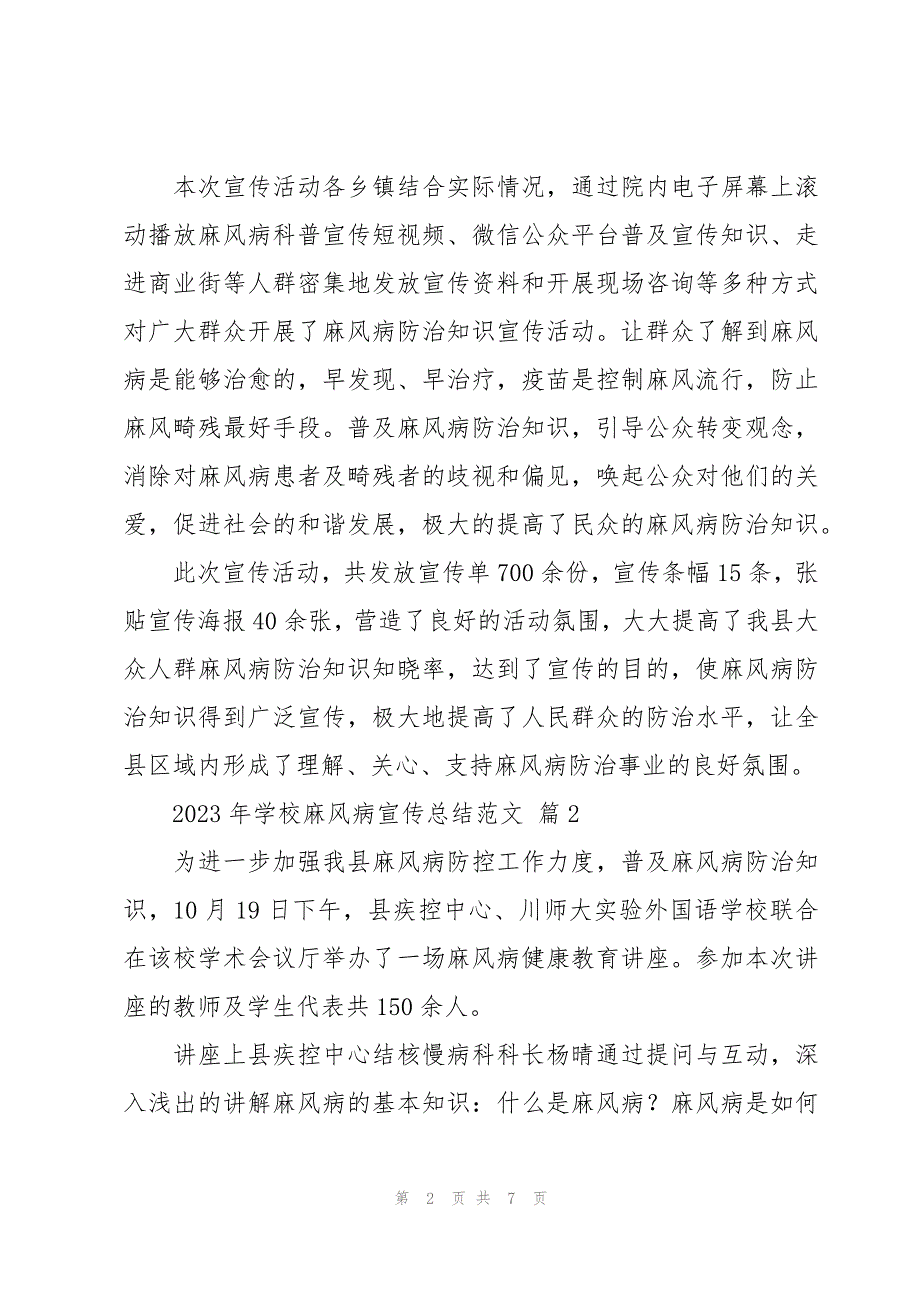 本次宣传活动各乡镇结合实际情况，通过院内电子屏幕上滚
动播放麻风病科普宣传短视频、微信公众平台普及宣传知识、走
进商业街等人群密集地发放宣传资料和开展现场咨询等多种方式
对广大群众开展了麻风病防治知识宣传活动。让群众了解到麻风
病是能够治愈的，早发现、早治疗，疫苗是控制麻风流行，防止
麻风畸残最好手段。普及麻风病防治知识，引导公众转变观念，
消除对麻风病患者及畸残者的歧视和偏见，唤起公众对他们的关
爱，促进社会的和谐发展，极大的提高了民众的麻风病防治知识。
此次宣传活动，共发放宣传单 700 余份，宣传条幅 15 条，张
贴宣传海报 40 余张，营造了良好的活动氛围，大大提高了我县大
众人群麻风病防治知识知晓率，达到了宣传的目的，使麻风病防
治知识得到广泛宣传，极大地提高了人民群众的防治水平，让全
县区域内形成了理解、关心、支持麻风病防治事业的良好氛围。
2023 年学校麻风病宣传总结范文 篇 2
为进一步加强我县麻风病防控工作力度，普及麻风病防治知
识，10 月 19 日下午，县疾控中心、川师大实验外国语学校联合
在该校学术会议厅举办了一场麻风病健康教育讲座。参加本次讲
座的教师及学生代表共 150 余人。
讲座上县疾控中心结核慢病科科长杨晴通过提问与互动，深
入浅出的讲解麻风病的基本知识：什么是麻风病？麻风病是如何
第 2 页 共 7 页